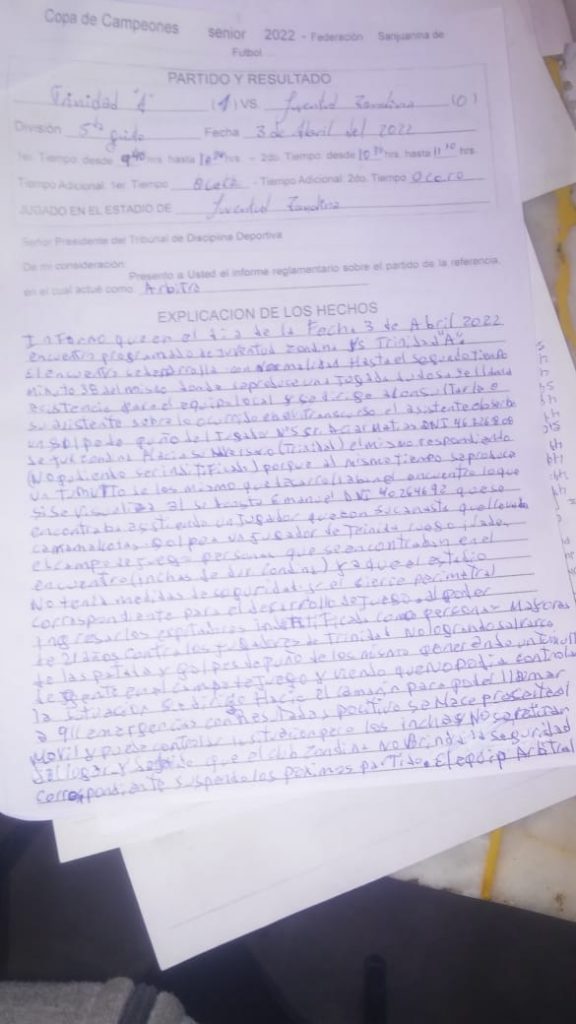 Copa de Campeones senior 2022 - Federación Sanjuanina de
Futbol
PARTIDO Y RESULTADO
Trinidad "A" (1) VS. Juventud Zondina (0)
División 5ta Fecha 3 de Abril del 2022
1er. Tiempo desde 9 40 hrs. hasta hrs - 2do. Tiempo: desde hrs. hasta 11 10 hrs.
Tiempo Adicional: 1er. Tiempo Ocero - Tiempo Adicional: 2do. Tiempo Ocero
JUGADO EN EL ESTADIO DE Juventud Zondina
Señor Presidente del Tribunal de Disciplina Deportiva
De mi consideración:
Presento a Usted el informe reglamentario sobre el partido de la referencia,
en el cual actué como: Arbitro
EXPLICACION DE LOS HECHOS
Informo que en el dia de la Fecha 3 de Abril 2022
encuentro programado de Juventud Zondina vs Trinidad "A".
El encuentro se desarrolla con Normalidad Hasta el segundo tiempo
minuto del mismo donde se produce una Jugada
para el equipo local y se dirige a consultarle a
su asistente sobre lo ocurrido en el transcurso el asistente observa
un golpe de puño del Jugador N°5 Sr. Matias DNI
de Juv Zondina Hacia su Adversario (Trinidad) el mismo respondiendo
(No pudiendo ser indentificado) porque al mismo tiempo se produce
un TUMULTO de los mismo que desarrollaban el encuentro lo que
si se visualiza al Emanuel DNI 40264692 que se
encontraba un Jugador que con su canasta que llevaba
golpea un Jugador de Trinidad
el campo de juego personas que se encontraban en el
encuentro (inchas de Juv Zondina) ya que el estadio
No tenia medidas de seguridad y el cierre perimetral
correspondiente para el desarrollo de Juego al poder
ingresar los espectadores como personas Mayores
de 21 años contra los Jugadores de Trinidad No logrando
de las patada y golpes de puño de los mismo generando un
de gente en el campo de Juego y viendo que no podia controlar
la situacion se dirige Hacia el camarin para poder llamar
a 911 emergencias con resultados positivo se Hace presente el
movil y puede controlar la situacion pero los inchas No se retiran
del lugar y que el club Zondina No Brinda la seguridad
correspondiente suspende los proximos partido. El equip Arbitral